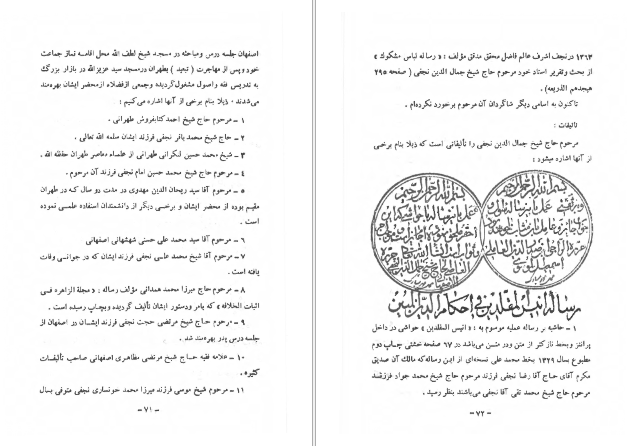 اصفهان جلسه درس ومباحثه در مسجد شیخ لطف الله محل اقامه نماز جماعت
خود وپس از مهاجرت ( تبعید ) بطهران درمسجد سید عزیزالله در بازار بزرگ
به تدریس فقه واصول مشغول گردیده وجمعی ازفضلاء ازمحضر ایشان بهره‌مند
می‌شدند ۰ ذیلا بنام برخی از آنها اشاره می‌کنیم :
۱ ــ مرحوم حاج شیخ احمد کتابفروش طهرانی ۰
۲ ــ حاج شیخ محمد باقر نجفی فرزند ایشان سلمه الله تعالی ۰
۳ ــ شیخ محمد حسین لنکرانی طهرانی از علماء معاصر طهران حفظه الله ۰
۴ ــ مرحوم حاج شیخ محمد حسین امام نجفی فرزند آن مرحوم ۰
۵ ــ مرحوم آقا سید ریحان الدین مهدوی در مدت دو سال که در طهران
مقیم بوده از محضر ایشان و برخی دیگر از دانشمندان استفاده علمی نموده
است ۰
۶ ــ مرحوم آقا سید محمد علی حسنی اصفهانی
۷ ــ مرحوم آقا شیخ محمد علی نجفی فرزند ایشان که در جوانی وفات
یافته است ۰
۸ ــ مرحوم حاج میرزا محمد همدانی مؤلف رساله : « عجلة الزاهره فی
اثبات الخلافه » که بامر ودستور ایشان تألیف گردیده وبچاپ رسیده است ۰
۹ ــ مرحوم حاج شیخ مرتضی حجت نجفی فرزند ایشان در اصفهان از
جلسه درس پدر بهره‌مند شد ۰
۱۰ ــ علامه فقیه حاج شیخ مرتضی مظاهری اصفهانی صاحب تألیفات
کثیره ۰
۱۱ ــ مرحوم شیخ موسی فرزند میرزا محمد خوانساری نجفی متوفی بسال
ــ ۷۱ ــ
۱۳۶۳ در نجف اشرف عالم فاضل محقق مدقق مؤلف : « رساله لباس مشکوک »
از بحث وتقریر استاد خود مرحوم حاج شیخ جمال الدین نجفی ( صفحه ۲۹۵
هیجدهم الذریعه) ۰
تاکنون به اسامی دیگر شاگردان آن مرحوم برخورد نکرده‌ام ۰
تألیفات :
مرحوم حاج شیخ جمال الدین نجفی را تألیفاتی است که ذیلا بنام برخی
از آنها اشاره میشود :
بسم الله الرحمن الرحیم
بسم الله الرحمن الرحیم
رساله انیس المقلدین فی احکام الدین المبین
۱ ــ حاشیه بر رساله عملیه موسوم به : « انیس المقلدین » حواشی در داخل
پرانتز وبخط نازکتر از متن ودر متن می‌باشد در ۶۷ صفحه خشتی چاپ دوم
مطبوع بسال ۱۳۲۹ بخط محمد علی نسخه‌ای از این رساله‌که مالک آن صدیق
مکرم آقای حاج آقا رضا نجفی فرزند مرحوم حاج شیخ محمد جواد فرزند
مرحوم حاج شیخ محمد تقی آقا نجفی می‌باشند بنظر رسید ۰
ــ ۷۲ ــ